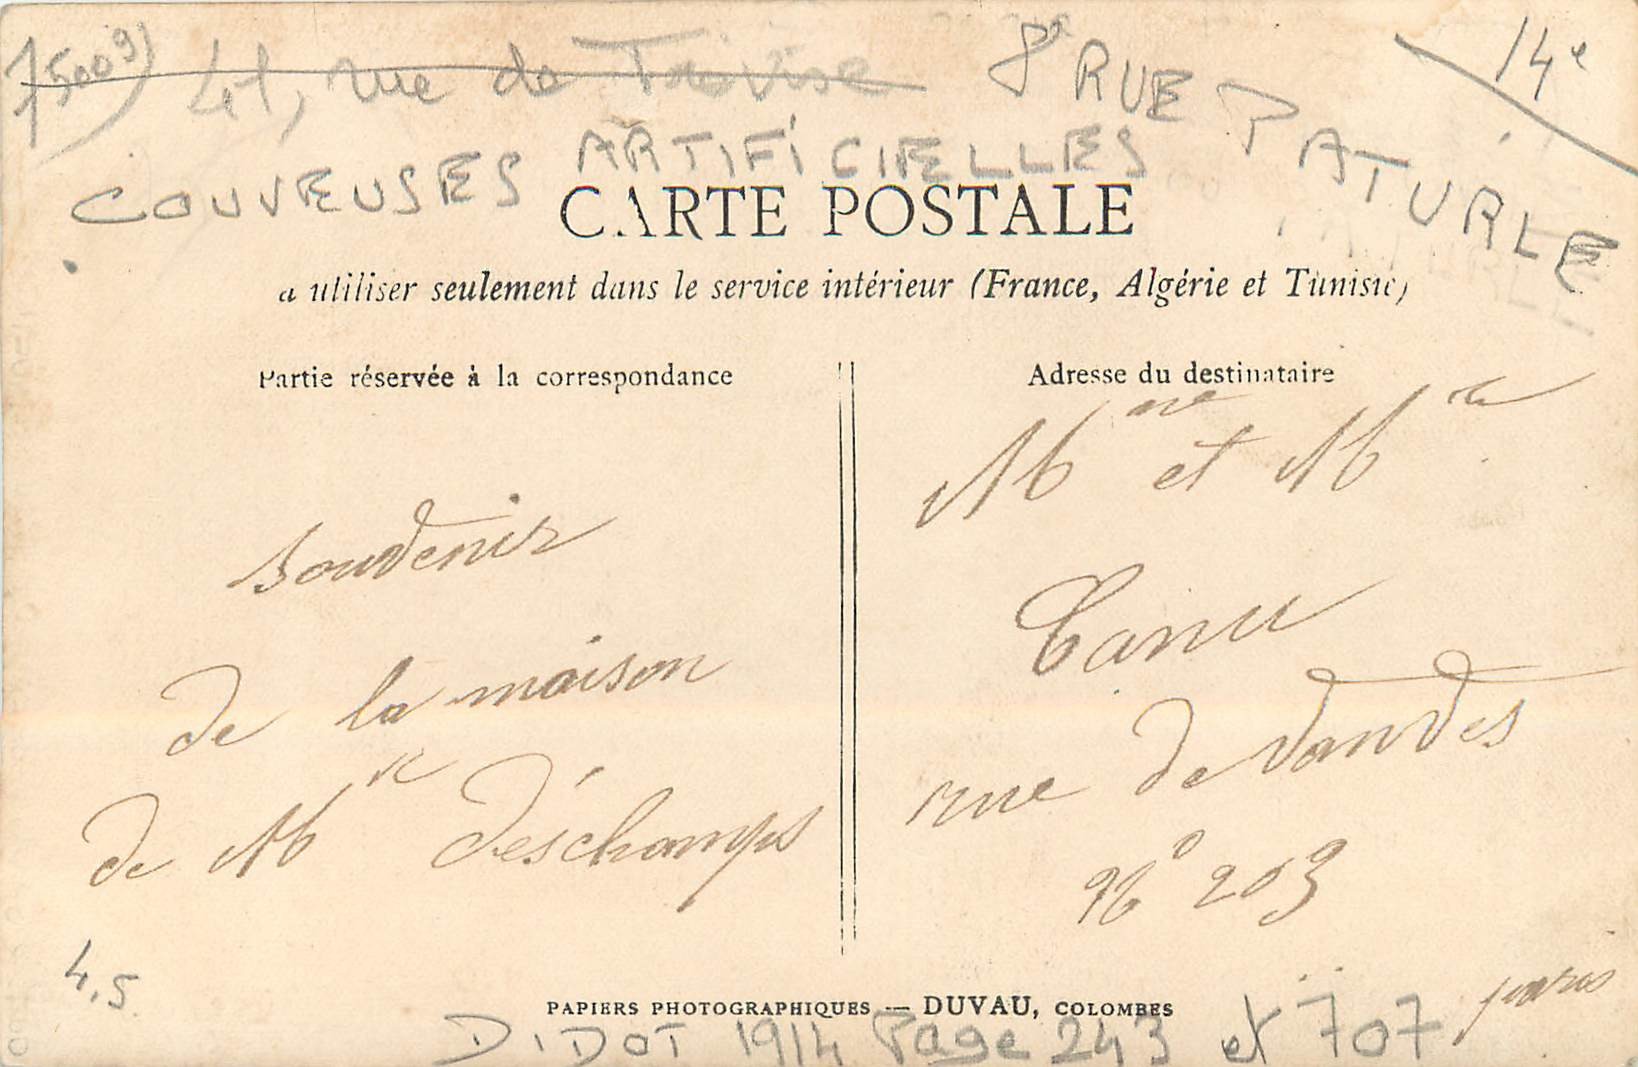 75009) 41, rue de Trévise 8 RUE PATURLE 14e
COUVEUSES ARTIFICIELLES
CARTE POSTALE
à utiliser seulement dans le service intérieur (France, Algérie et Tunisie)
Partie réservée à la correspondance
Adresse du destinataire
Souvenir
de la maison
de Mr Déschamps
Mme et Mlle
Canu
rue de Vanves
No 203
paris
4,5
PAPIERS PHOTOGRAPHIQUES — DUVAU, COLOMBES
DIDOT 1914 Page 243 et 707